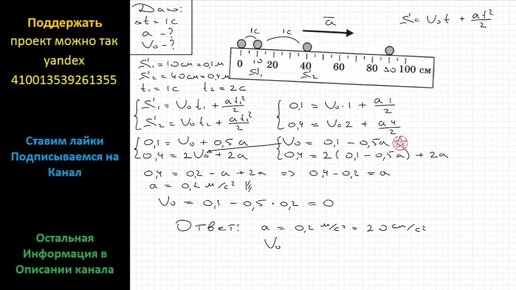 Поддержать
проект можно так
yandex
410013539261355
Ставим лайки
Подписываемся на
Канал
Остальная
Информация в
Описании канала
Дано:
Δt = 1с
a - ?
V₀ - ?
1с 1с
a
S = V₀t + at²/2
0 10 20 40 60 80 100 см
S₁ S₂
S₁ = 10см = 0,1м
S₂ = 40см = 0,4м
t₁ = 1с t₂ = 2с
S₁ = V₀t₁ + at₁²/2
S₂ = V₀t₂ + at₂²/2
0,1 = V₀·1 + a1/2
0,4 = V₀2 + a4/2
0,1 = V₀ + 0,5a
0,4 = 2V₀ + 2a
V₀ = 0,1 - 0,5a
0,4 = 2(0,1 - 0,5a) + 2a
0,4 = 0,2 - a + 2a ⇒ 0,4 - 0,2 = a
a = 0,2 м/с²
V₀ = 0,1 - 0,5 · 0,2 = 0
Ответ: a = 0,2 м/с² = 20 см/с²
V₀